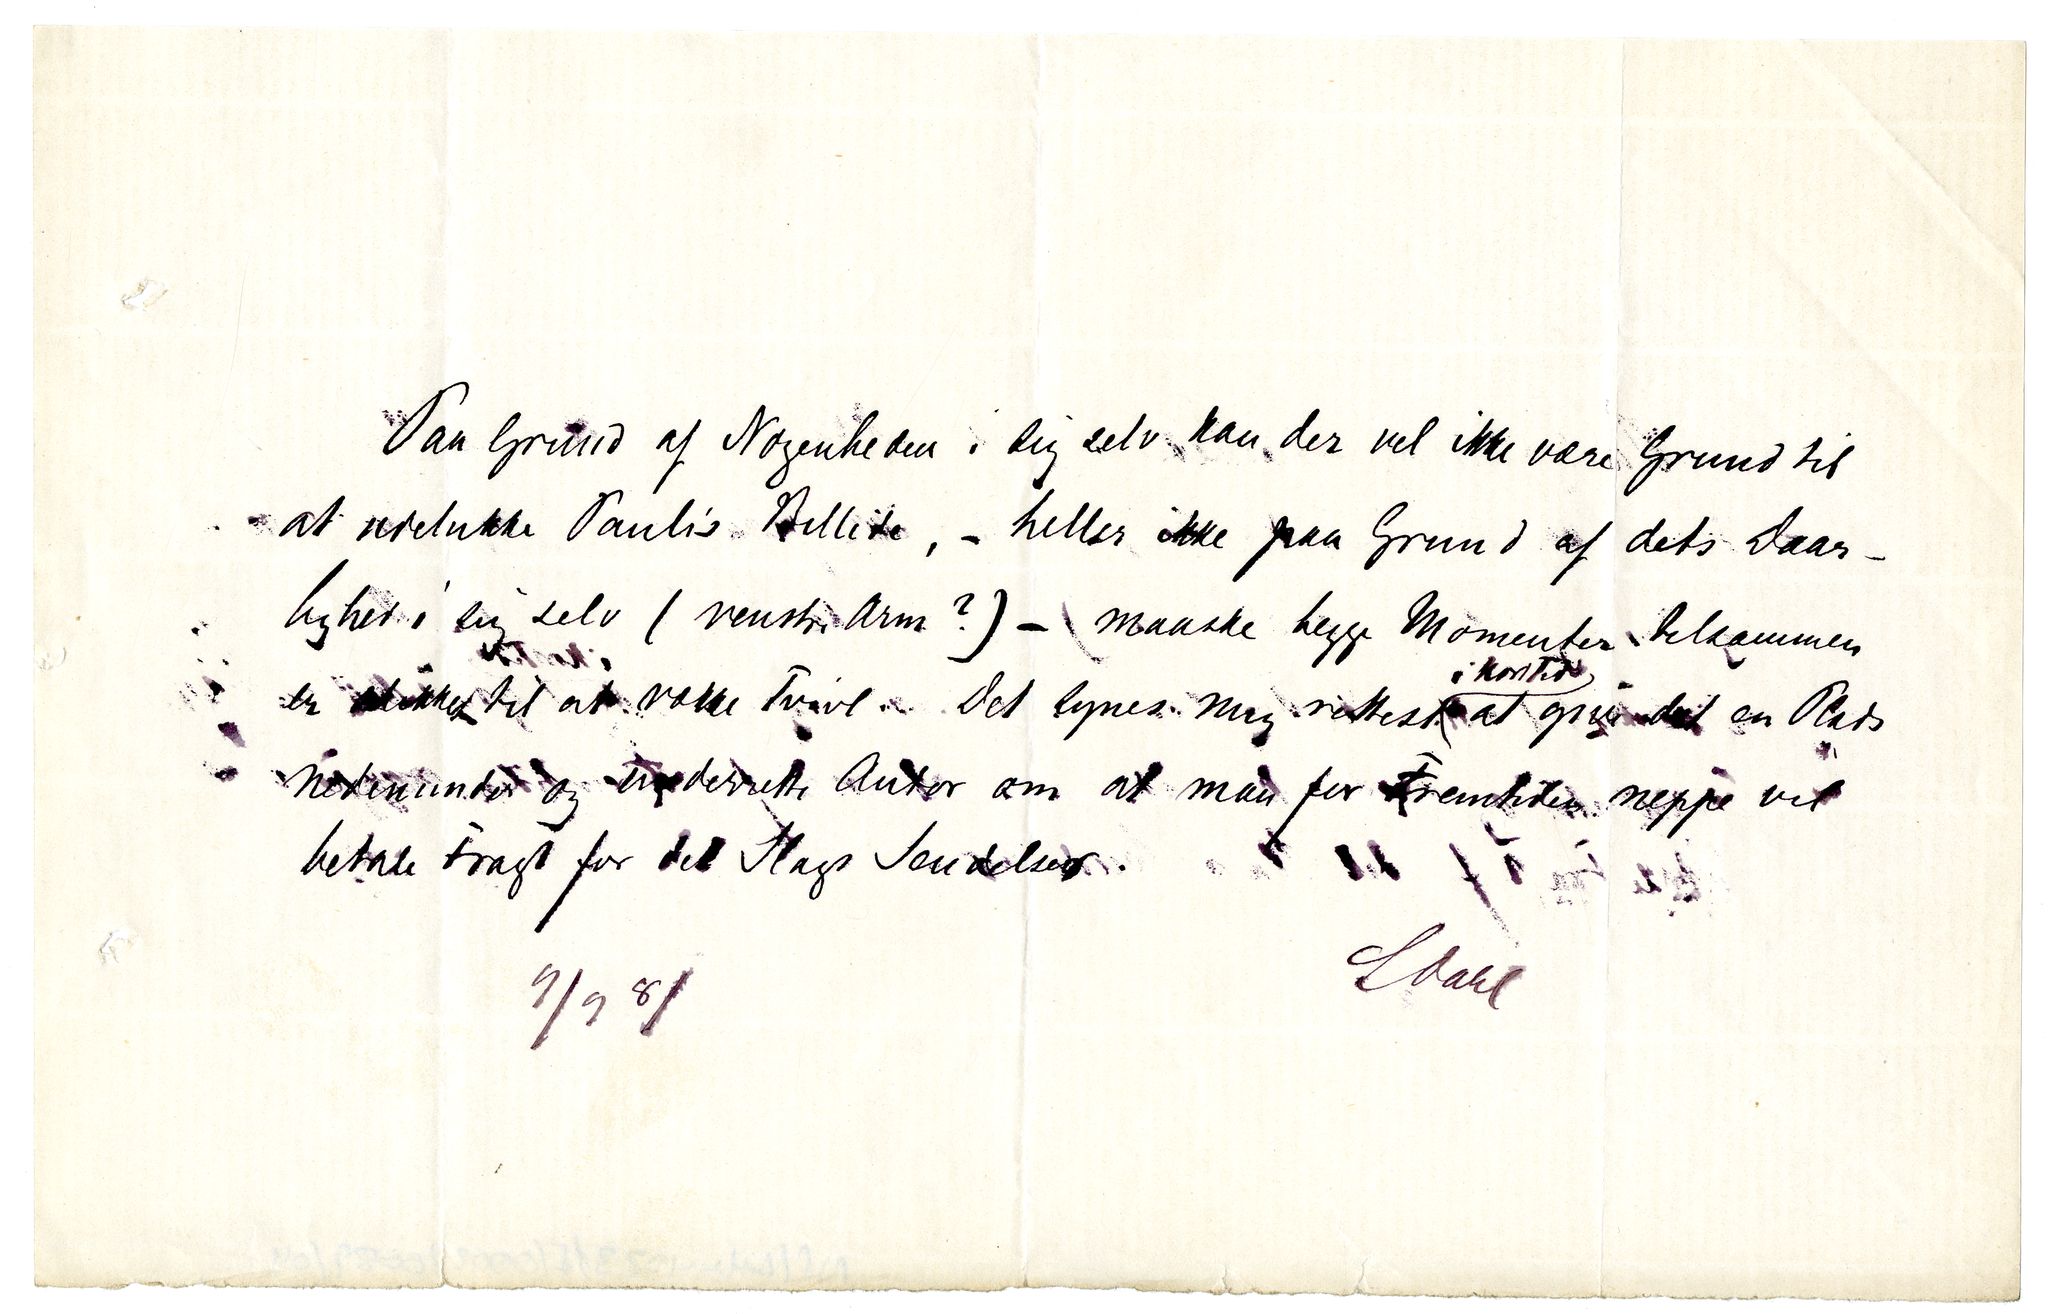 Paa Grund af Nøgenheden i sig selv kan der vel ikke være Grund til
at udelukke Paulis Billede, - heller ikke paa Grund af dets Daar-
lighed i sig selv (venstre Arm?) - maaske begge Momenter tilsammen
er til at vække Tvivl. Det synes mig rettest i kort Tid at give det en Plads
nedenunder og underrette Autor om at man for Fremtiden neppe vil
betale Fragt for det Slags Sendelser.
9/9 81
S Dahl